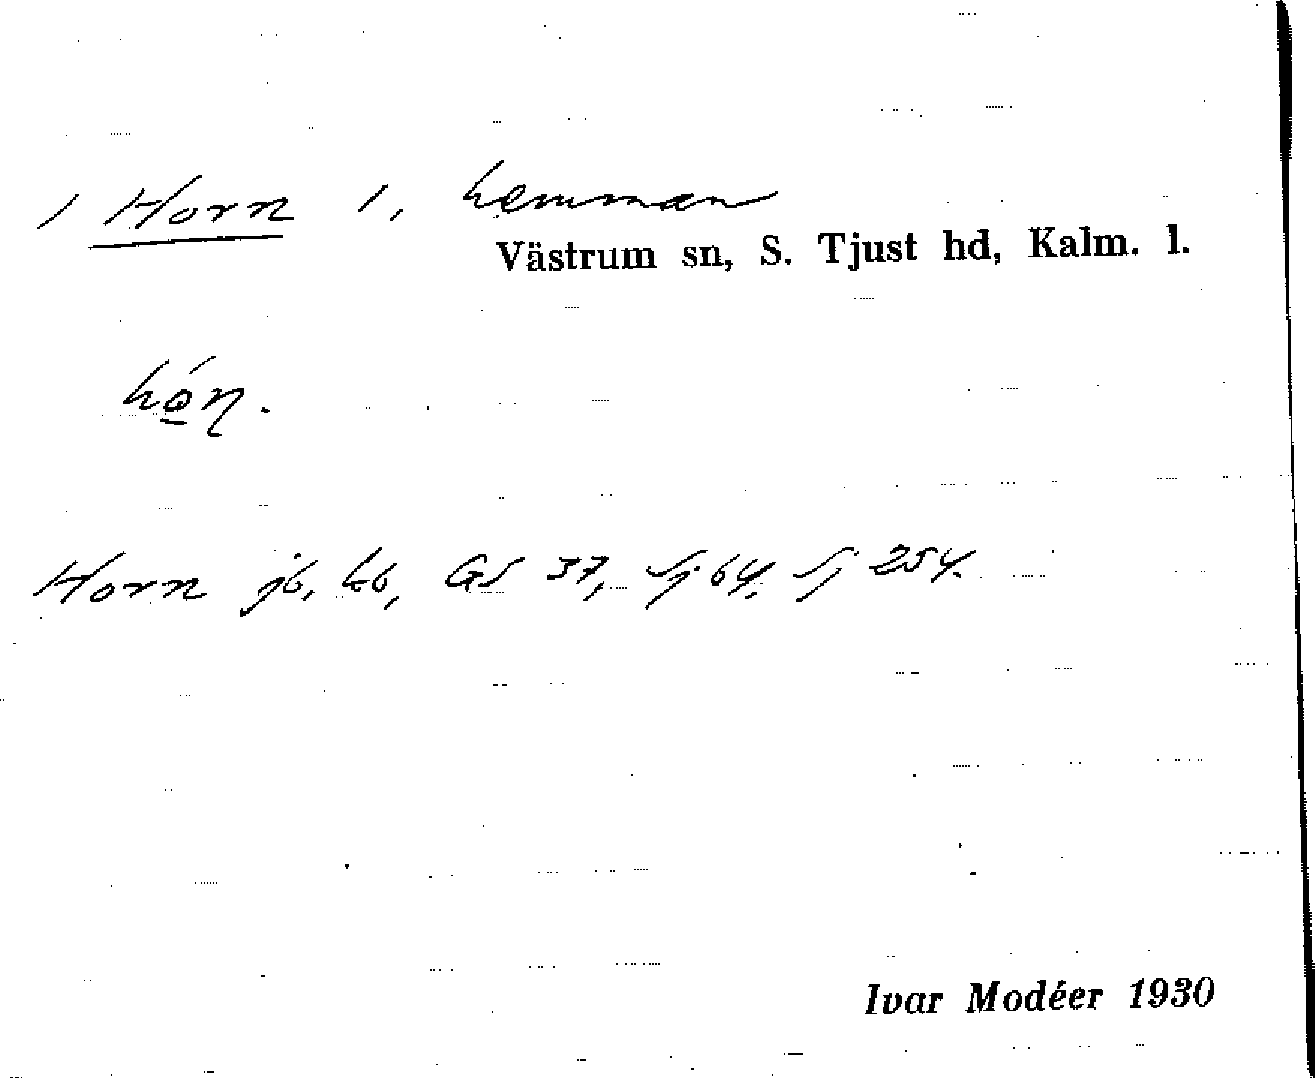 / Horn 1, hemman
Västrum sn, S. Tjust hd, Kalm. l.
hó̲ɳ.
Horn jb, kb, GS 37, Sj 64, Sj 254.
Ivar Modéer 1930